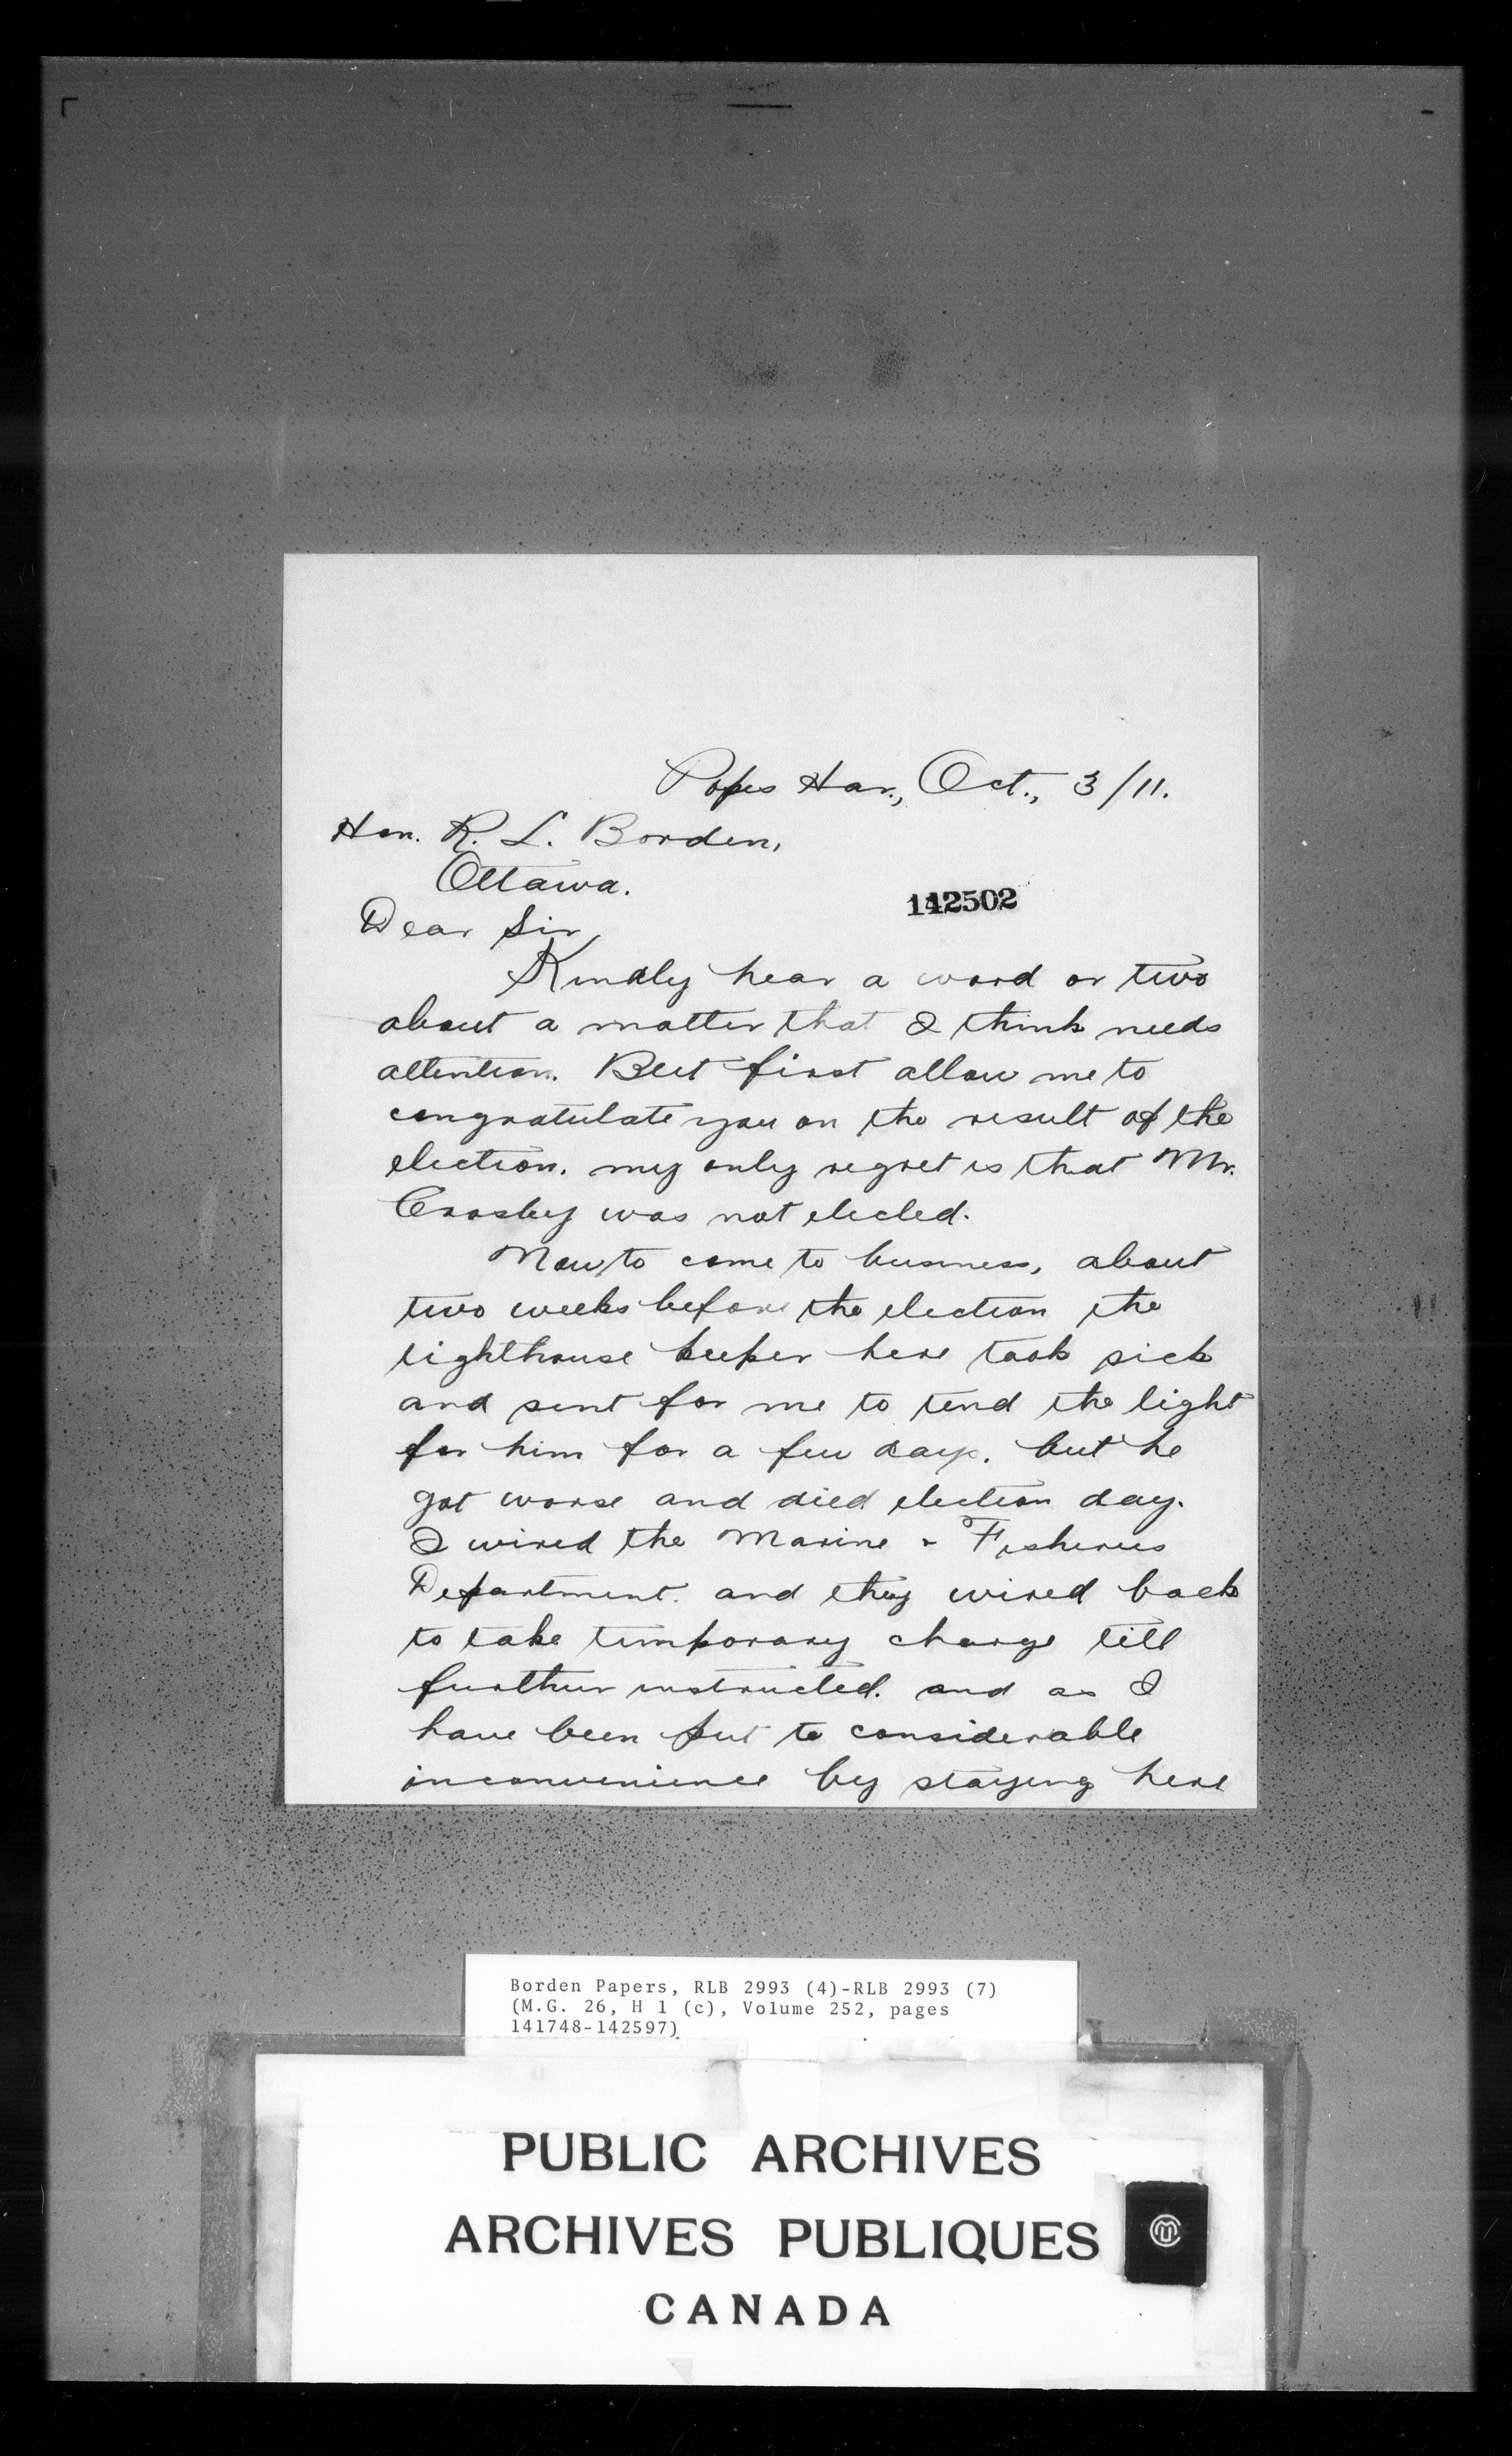 Popes Har., Oct., 3/11.
Hon. R. L. Borden,
Ottawa.
142502
Dear Sir,
Kindly hear a word or two
about a matter that I think needs
attention. But first allow me to
congratulate you on the result of the
election. my only regret is that Mr.
Crosby was not elected.
Now to come to business, about
two weeks before the election the
lighthouse keeper here took sick
and sent for me to tend the light
for him for a few days. but he
got worse and died election day.
I wired the Marine & Fisheries
Department. and they wired back
to take temporary charge till
further instructed. and as I
have been put to considerable
inconvenience by staying here
Borden Papers, RLB 2993 (4)-RLB 2993 (7)
(M.G. 26, H 1 (c), Volume 252, pages
141748-142597)
PUBLIC ARCHIVES
ARCHIVES PUBLIQUES
CANADA